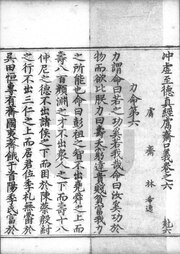 沖虛至德真經鬳齋口義卷之六
鬳齋 林 希逸
力命第六
力謂命曰若之功奚若我哉命曰汝奚功於
物而欲比朕力曰壽夭窮達貴賤貧富我力
之所能也命曰彭祖之智不出堯舜之上而
壽八百顏淵之才不出衆人之下而壽十八
仲尼之德不出諸侯之下而困於陳蔡殷紂
之行不出三仁之上而居君位季札無爵於
吳田恒專有齊國夷齊餓於首陽季氏富於